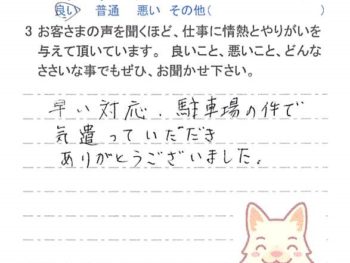 良い 普通 悪い その他( )
3 お客さまの声を聞くほど、仕事に情熱とやりがいを
与えて頂いています。 良いこと、悪いこと、どんな
ささいな事でもぜひ、お聞かせ下さい。
早い対応、駐車場の件で
気遣っていただき
ありがとうございました。